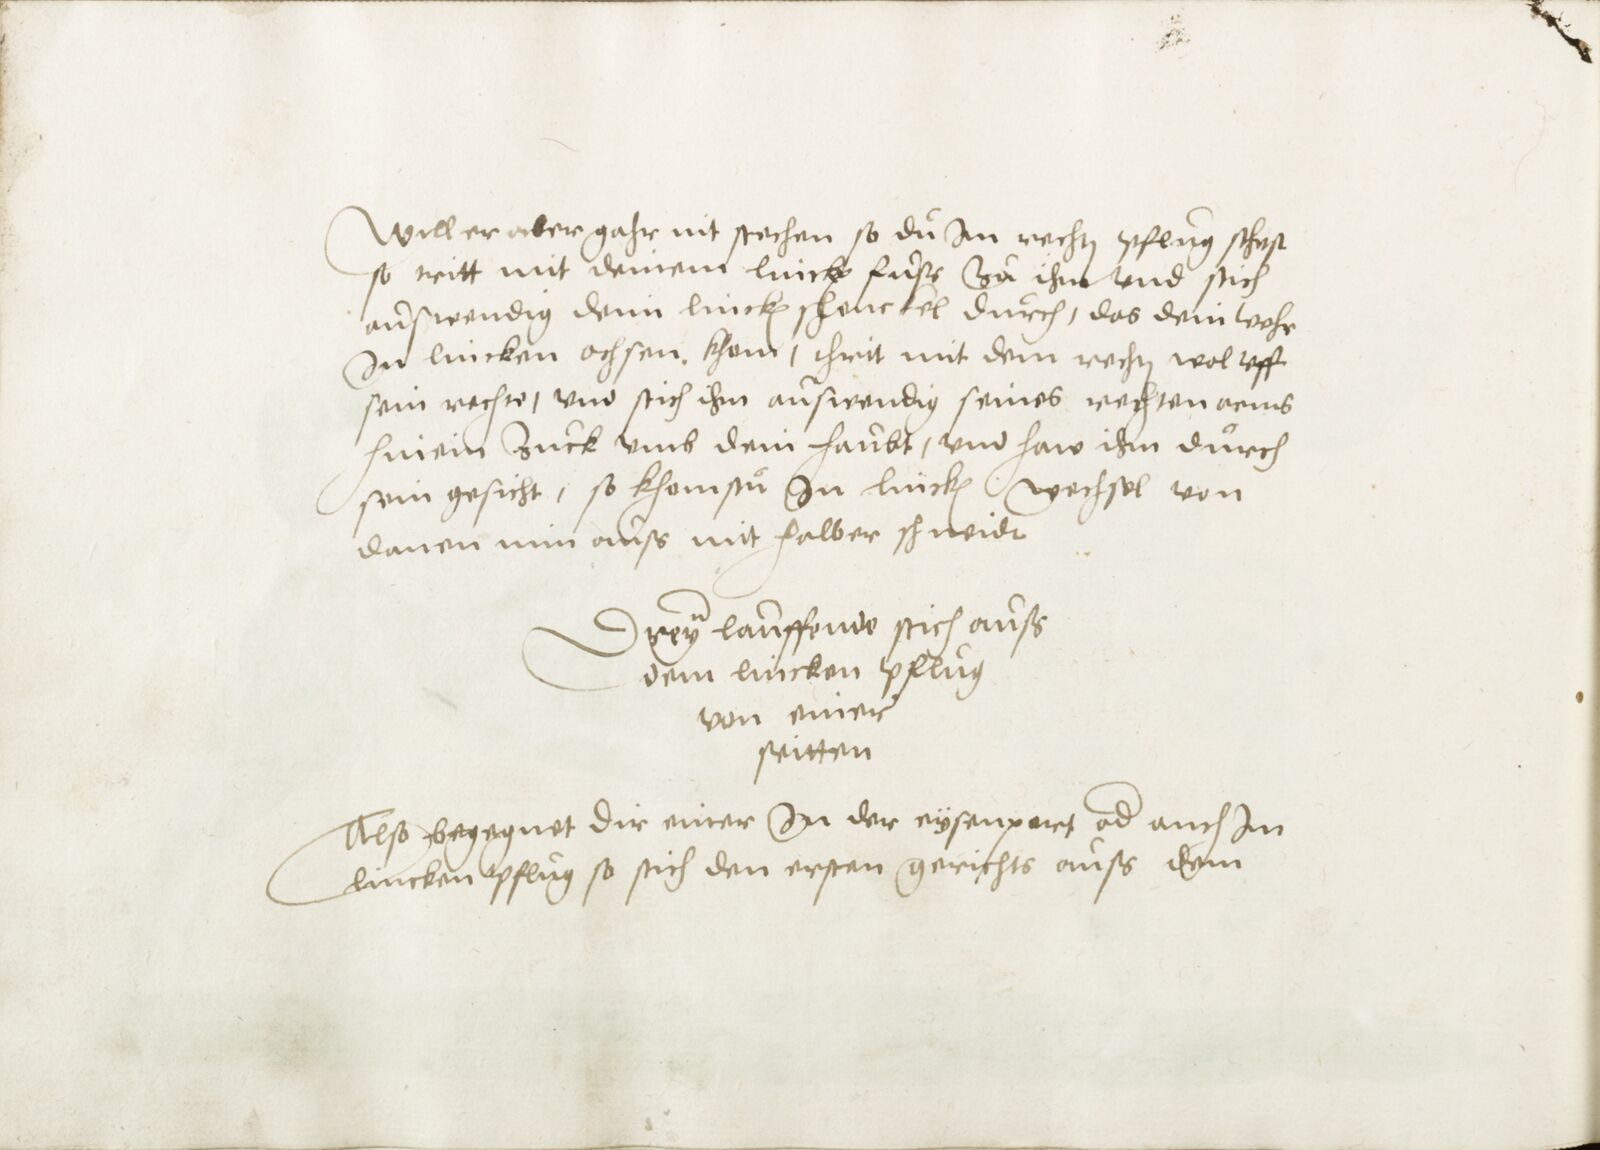 Will er aber gahr nit stechen so du Im rechtē pflug sthest
so tritt mit deinem linckē fuss Zu ihm vnd stich
auswendig deim linckē schenckel durch, das dein wehr
In lincken ochsen khom, thrit mit dem rechtē wol vff
sein rechte, vnd stich ihm auswendig seines rechten arms
hinein Zuck vmb dein haubt, vnd haw ihm durch
sein gesicht, so khomstu In linckē wechsel von
danen nim auss mit halber schneidt
Dreÿ lauffende stich auss
dem lincken pflug
von einer
seitten
Also begegnet dir einer In der eÿsenport od auch Im
lincken pflug so stich den ersten gerichts auss dem